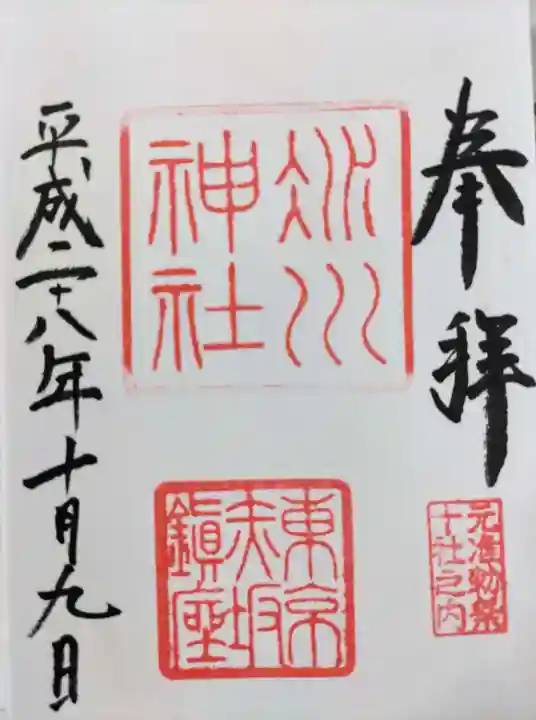 奉拝
元准勅祭
十社之内
氷川
神社
東京
赤坂
鎮座
平成二十八年十月九日